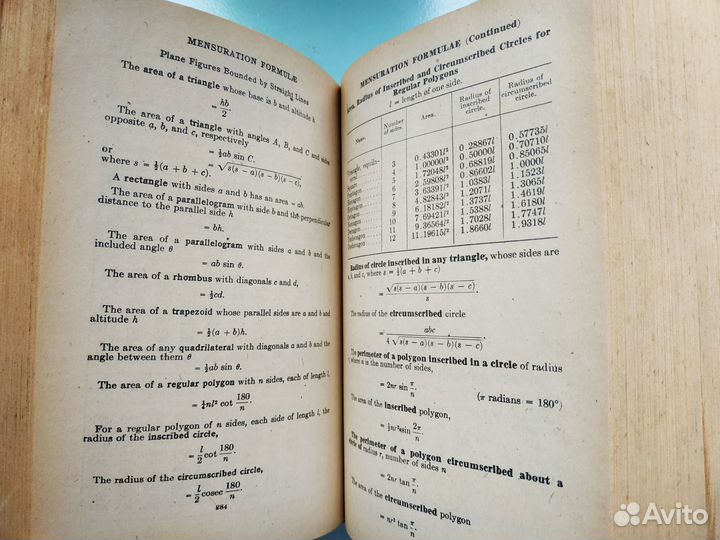 MENSURATION FORMULÆ
Plane Figures Bounded by Straight Lines
The area of a triangle whose base is b and altitude h
= hb/2.
The area of a triangle with angles A, B, and C and sides
opposite a, b, and c, respectively
= ½ab sin C.
or
= √s(s − a)(s − b)(s − c),
where s = ½(a + b + c).
A rectangle with sides a and b has an area = ab.
The area of a parallelogram with side b and the perpendicular
distance to the parallel side h
= bh.
The area of a parallelogram with sides a and b and the
included angle θ
= ab sin θ.
The area of a rhombus with diagonals c and d,
= ½cd.
The area of a trapezoid whose parallel sides are a and b and
altitude h
= ½(a + b)h.
The area of any quadrilateral with diagonals a and b and the
angle between them θ
= ½ab sin θ.
The area of a regular polygon with n sides, each of length l,
= ¼nl² cot 180/n.
For a regular polygon of n sides, each side of length l, the
radius of the inscribed circle,
= l/2 cot 180/n.
The radius of the circumscribed circle,
= l/2 cosec 180/n.
284
MENSURATION FORMULAE (Continued)
Area, Radius of Inscribed and Circumscribed Circles for
Regular Polygons
l = length of one side.
Name. Number of sides. Area. Radius of inscribed circle. Radius of circumscribed circle.
Triangle, equilateral 3 0.43301l² 0.28867l 0.57735l
Square 4 1.0000l² 0.50000l 0.70710l
Pentagon 5 1.72048l² 0.68819l 0.85065l
Hexagon 6 2.59808l² 0.86602l 1.0000l
Heptagon 7 3.63391l² 1.0383l 1.1523l
Octagon 8 4.82843l² 1.2071l 1.3065l
Nonagon 9 6.18182l² 1.3737l 1.4619l
Decagon 10 7.69421l² 1.5388l 1.6180l
Undecagon 11 9.36564l² 1.7028l 1.7747l
Dodecagon 12 11.19615l² 1.8660l 1.9318l
Radius of circle inscribed in any triangle, whose sides are
a, b, and c, where s = ½(a + b + c)
= √s(s − a)(s − b)(s − c)/s.
The radius of the circumscribed circle
= abc/4√s(s − a)(s − b)(s − c).
The perimeter of a polygon inscribed in a circle of radius
r, where n is the number of sides,
= 2nr sin π/n. (π radians = 180°)
The area of the inscribed polygon,
= ½nr² sin 2π/n.
The perimeter of a polygon circumscribed about a
circle of radius r, number of sides n
= 2nr tan π/n.
The area of the circumscribed polygon
= nr² tan π/n.
Avito